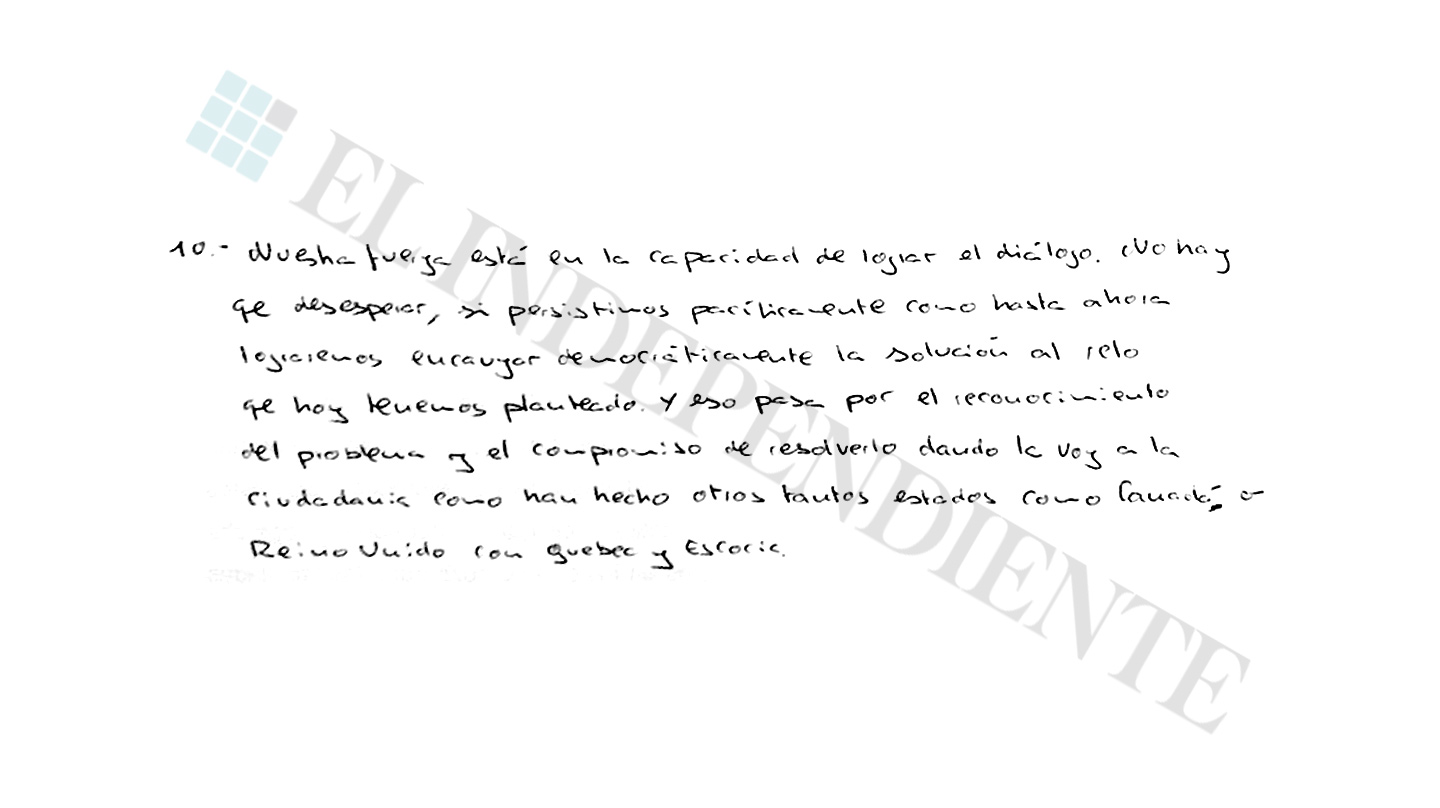 EL INDEPENDIENTE
10.- Nuestra fuerza está en la capacidad de lograr el diálogo. No hay
qe desesperar, si persistimos pacíficamente como hasta ahora
lograremos encauzar democráticamente la solución al reto
qe hoy tenemos planteado. Y eso pasa por el reconocimiento
del problema y el compromiso de resolverlo dando la voz a la
ciudadanía como han hecho otros tantos estados como Canadá, o
Reino Unido con Quebec y Escocia.